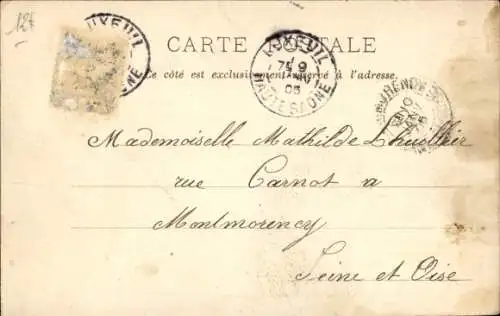 12f
CARTE POSTALE
Ce côté est exclusivement réservé à l'adresse.
LUXEUIL
HAUTE SAÔNE
LUXEUIL
9
05
HAUTE SAÔNE
Mademoiselle Mathilde Lhuillier
rue Carnot a
Montmorency
Seine et Oise